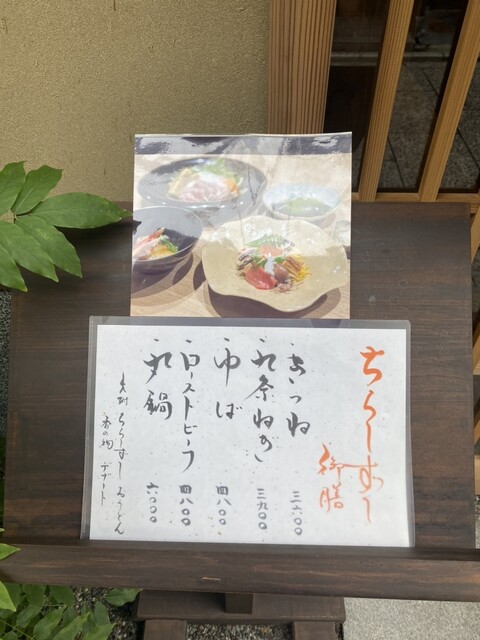 ちらしずし
御膳
きつね 三六〇〇
九条ねぎ 三九〇〇
ゆば 四八〇〇
ローストビーフ 四八〇〇
丸鍋 六〇〇〇
先附 ちらしずし おうどん
香の物 デザート